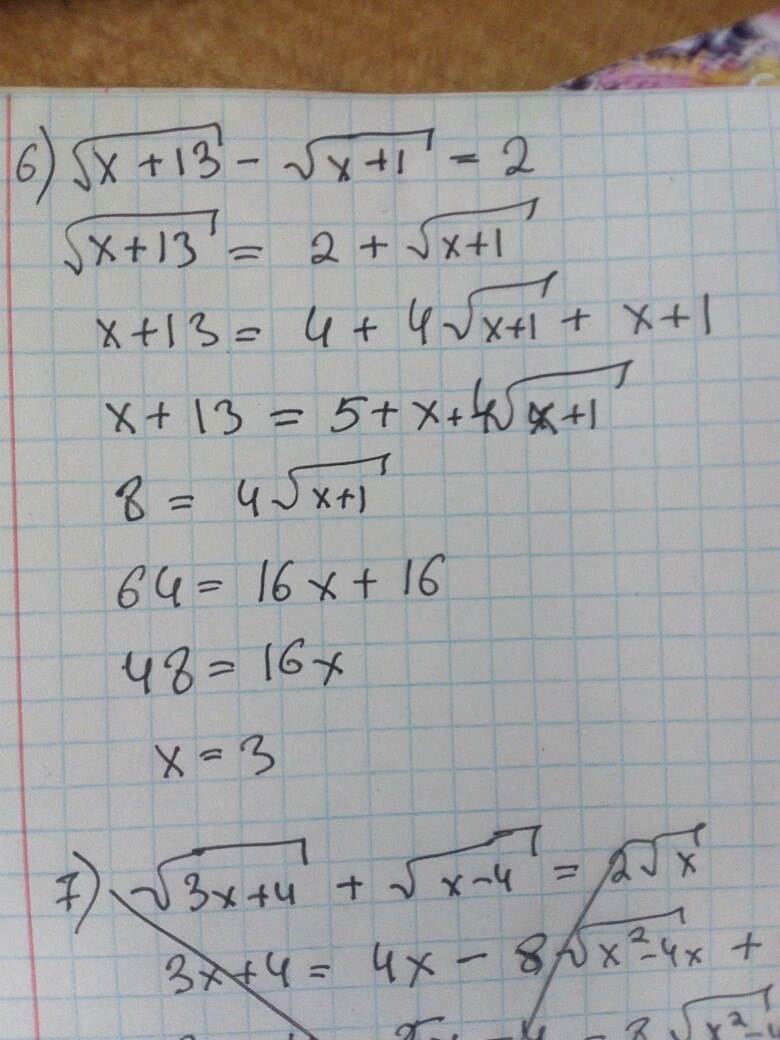 6) √(x+13) - √(x+1) = 2
√(x+13) = 2 + √(x+1)
x+13 = 4 + 4√(x+1) + x+1
x+13 = 5+x+4√(x+1)
8 = 4√(x+1)
64 = 16x + 16
48 = 16x
x = 3
7) √(3x+4) + √(x-4) = 2√x
3x+4 = 4x - 8√(x²-4x) +